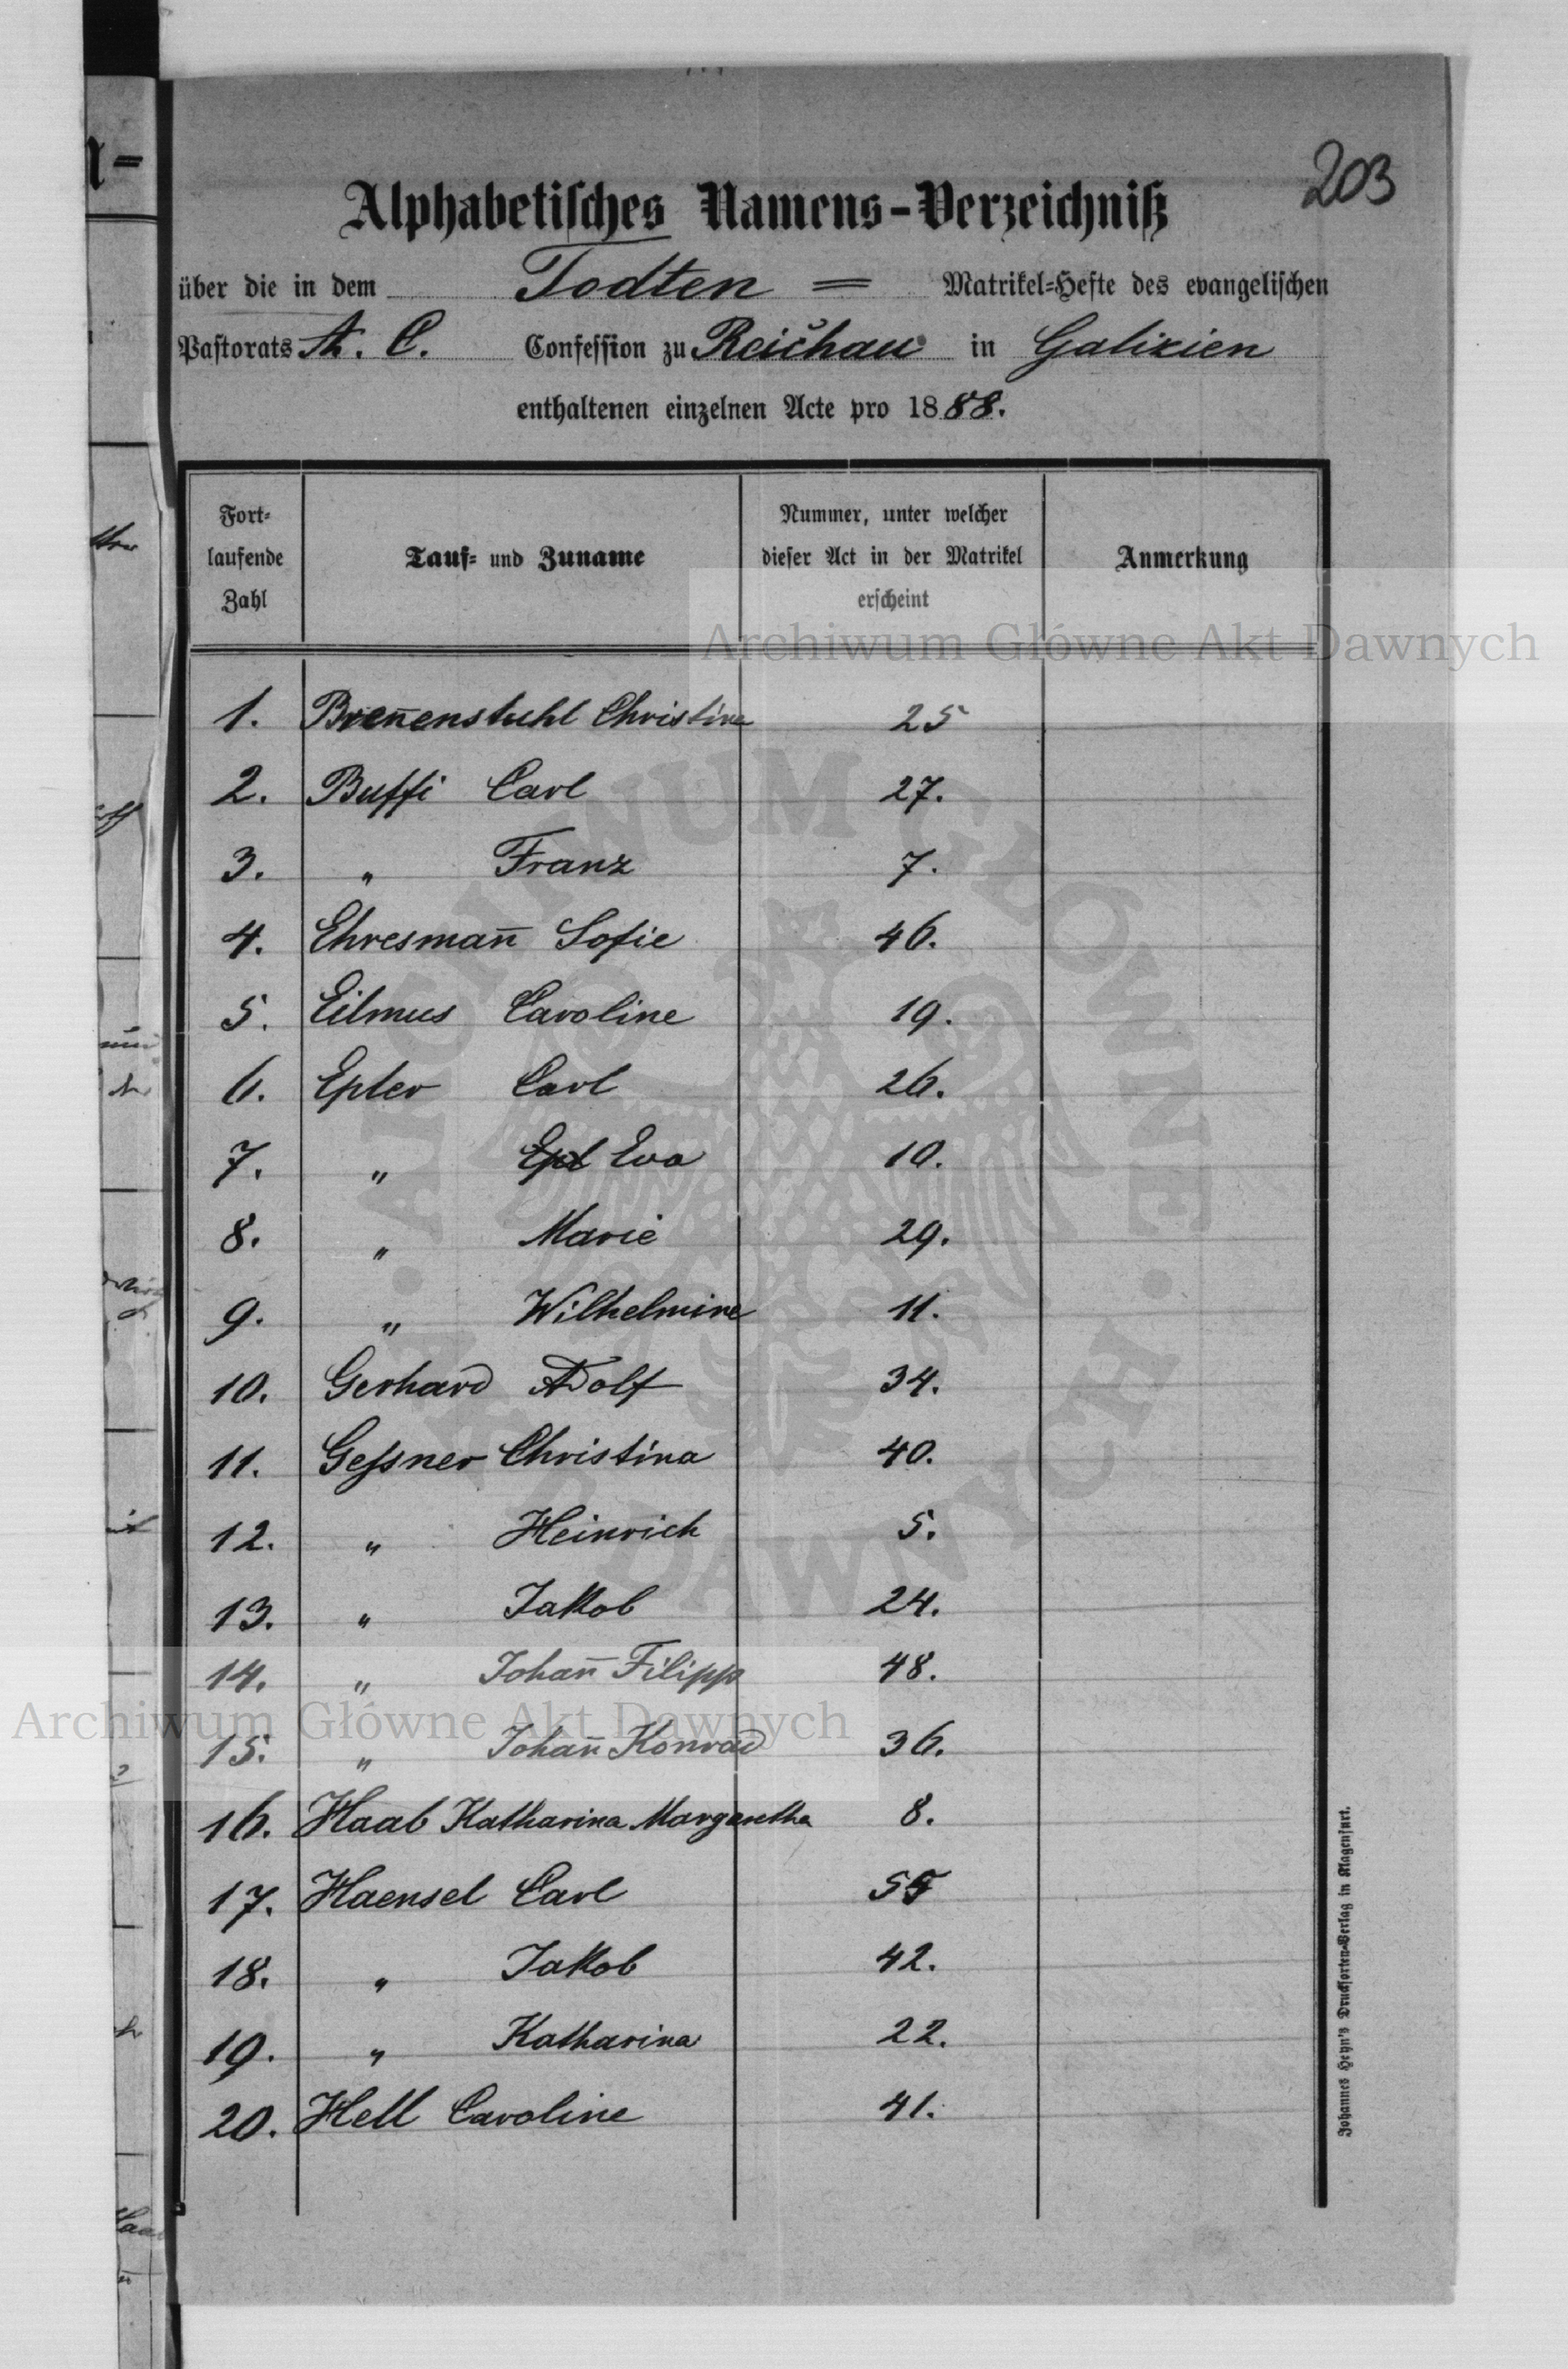 203
Alphabetisches Namens-Verzeichniß
über die in dem Todten = Matrikel-Hefte des evangelischen
Pastorats A. C. Confession zu Reichau in Galizien
enthaltenen einzelnen Acte pro 1888.
Fort-laufende Zahl | Tauf- und Zuname | Nummer, unter welcher dieser Act in der Matrikel erscheint | Anmerkung
1. Breñenstuhl Christine 25
2. Buffi Carl 27.
3. " Franz 7.
4. Ehresmañ Sofie 46.
5. Eilmus Caroline 19.
6. Epler Carl 26.
7. " Eva 10.
8. " Marie 29.
9. " Wilhelmine 11.
10. Gerhard Adolf 34.
11. Gessner Christina 40.
12. " Heinrich 5.
13. " Jakob 24.
14. " Johañ Filipp 48.
15. " Johañ Konrad 36.
16. Haab Katharina Margaretha 8.
17. Haensel Carl 55
18. " Jakob 42.
19. " Katharina 22.
20. Hell Caroline 41.
Johannes Heyn's Drucksorten-Verlag in Klagenfurt.
Archiwum Główne Akt Dawnych
Archiwum Główne Akt Dawnych
ARCHIWUM GŁÓWNE AKT DAWNYCH